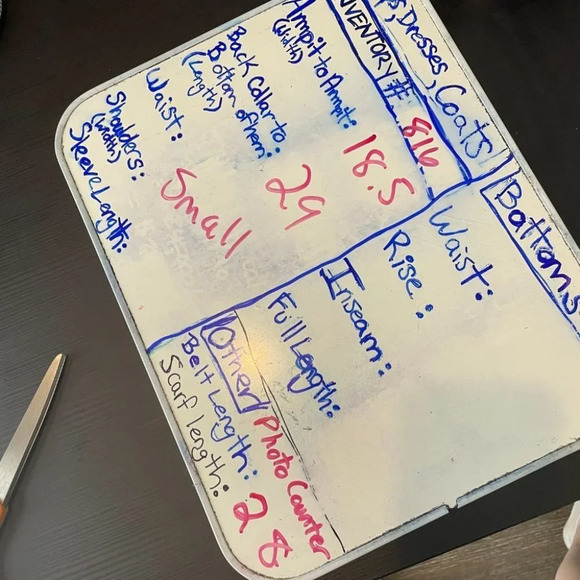 ps, Dresses, Coats
INVENTORY # 816
Armpit to Armpit: 18.5
(width)
Back Collar to
Bottom of Hem: 29
(Length)
Waist:
Small
Shoulders:
(width)
Sleeve Length:
Bottoms
Waist:
Rise:
Inseam:
Full Length:
Other/ Photo Counter
Belt Length: 28
Scarf length: